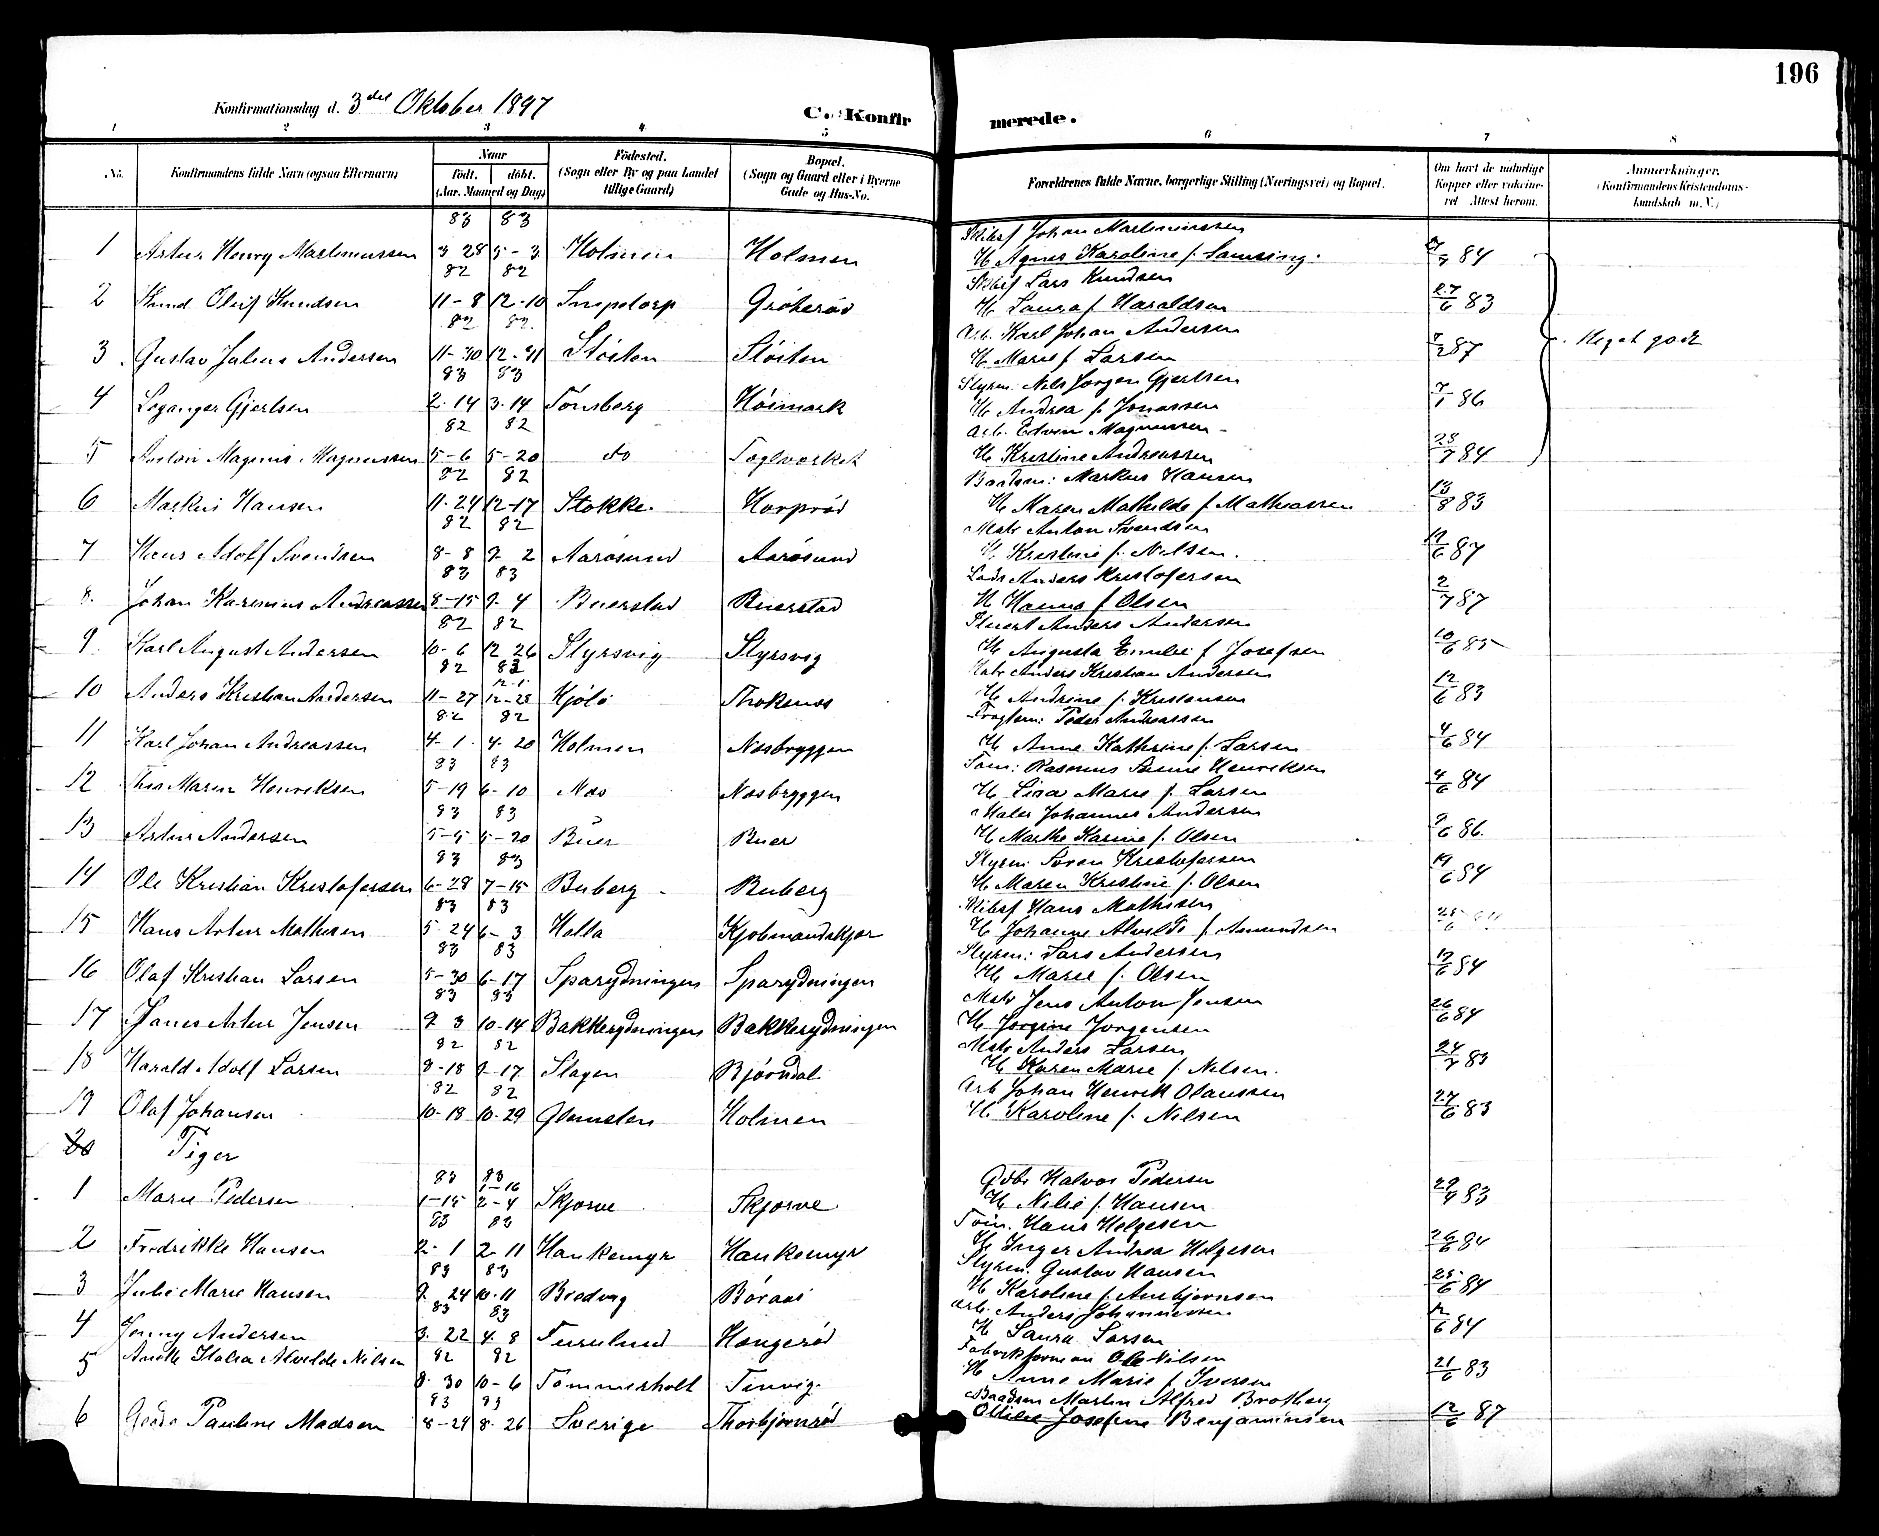 196
Konfirmationsdag d. 3die Oktober 1897
C. Konfirmerede.
1 2 3 4 5 6 7 8
No.
Konfirmandens fulde Navn (ogsaa Efternavn)
Naar
födt. döbt.
(Aar, Maaned og Dag)
Födested.
(Sogn eller By og paa Landet tillige Gaard)
Bopæl.
(Sogn og Gaard eller i Byerne Gade og Hus-No.
Forældrenes fulde Navne, borgerlige Stilling (Næringsvei) og Bopæl.
Om havt de naturlige Kopper eller vakcineret Attest herom.
Anmærkninger.
(Konfirmandens Kristendomskundskab m. V.)
83 83 Skibsf Johan Martiniussen
1 Artur Henry Martinussen 3 28 5-3 Holmen Holmen H. Agnes Karoline f. Samsing. 84
82 82 Skibsf Lars Knudsen
2 Knud Oluf Knudsen 11-8 12-10 Snipetorp Gröterød H. Laura f Haraldsen 27/6 83
82 82 Arb. Karl Johan Andersen
3 Gustav Julius Andersen 11-30 12-31 Slösten Slösten H. Marie f Larsen 87 Meget godt
83 83 Styrm. Nils Jörgen Gjertsen
4 Leganger Gjertsen 2-14 3-14 Tönsberg Höimark H. Andrea f. Jonassen 86
82 82 Arb. Edvin Magnussen
5 Magnus Magnussen 5-6 5-20 do Teglverket H. Kristine Andreassen 84
82 82 Baadsm: Markus Hansen
6 Markus Hansen 11-24 12-17 Stokke Horprød H. Maren Mathilde f Mathiassen 13/8 83
82 82 Matr Anton Svendsen
7 Hans Adolf Svendsen 8-8 9-2 Aarösund Aarösund H. Kristine f. Nilsen. 87
83 83 Lods Anders Kristofersen
8. Johan Karenius Andreassen 8-15 9-4 Buerstad Buerstad H Hanna f Olsen 2/7 87
82 82 Stuert Anders Andersen
9. Karl August Andersen 10-6 12 26 Styrsvig Styrsvig H. Augusta Emilie f Josefsen 10/6 85
82 83 Matr Anders Kristian Andersen
10 Anders Kristian Andersen 11-27 12-28 Kjölö H. Andrine f. Kristensen 12/6 83
82 82 Peder Andreassen
11 Karl Johan Andreassen 4-1 4-20 Holmen Næsbryggen H. Anne Kathrine f. Larsen 4/6 84
83 83 Töm: Rasmus Henriksen
12 Henriksen 5-19 6-10 Næs Næsbryggen H. Lisa Marie f. Larsen 4/6 84
83 83 Maler Johannes Andersen
13 Artur Andersen 5-5 5-20 Buer Buer H Marthe Karine f. Olsen 86.
83 83 Styrm. Sören Kristofersen
14 Ole Kristian Kristofersen 6-28 7-15 Buberg Buberg H. Maren Kristine f. Olsen 84
83 83 Skibsf Hans Mathisen
15 Hans Artur Mathisen 5 24 6-3 Halla Kjöbmandskjær H. Johanne Alvilde f Amundsen
83 83 Styrm: Lars Andersen
16 Olaf Kristian Larsen 5-30 6-17 Sparydningen Sparydningen H. Marie f. Olsen 84
83 83 Matr Jens Anton Jensen
17 Artur Jensen 9 3 10-14 Bakkerydningen Bakkerydningen H. Jorgine Jorgensen 26/6 84
82 82 Matr Anders Larsen
18 Harald Adolf Larsen 8-18 9-17 Slagen Bjørndal H. Karen Marie f Nilsen. 83
82 82 Arb Johan Henrik Olaussen
19 Olaf Johansen 10-18 10-29 Holmen H. Karoline f. Nilsen 27/6 83
20 Piger
83 83 Gdbr Halvor Pedersen
1 Marie Pedersen 1-15 2-4 Skjærve Skjærve H. Nilie f. Hansen 83
83 83 Töm. Hans Helgesen
2 Fredrikke Hansen 2-1 2-11 Haukemyr Haukemyr H. Inger Andrea Helgesen 26/6 84
83 83 Styrm. Gustav Hansen
3 Julie Marie Hansen 9 24 10-11 Bredvig Böraas H Karoline f. Anbjörnsen 25/6 84
83 83 Arb. Anders Johannessen
4 Jenny Andersen 3-22 4-8 Furulund Hongerød H Laura Larsen 84
82 82 Fabrikforman Ole Nilsen
5 Anette Alvilde Nilsen 8-30 10-6 Tömmerholt H Anne Marie f Iversen 21/6 83
83 83 Baadsm Martin Alfred Brotberg
6 Pauline Madsen 8-29 8-26 Sverige Thorbjörnrød Ottilie Josefine Benjaminsen 12/6 87